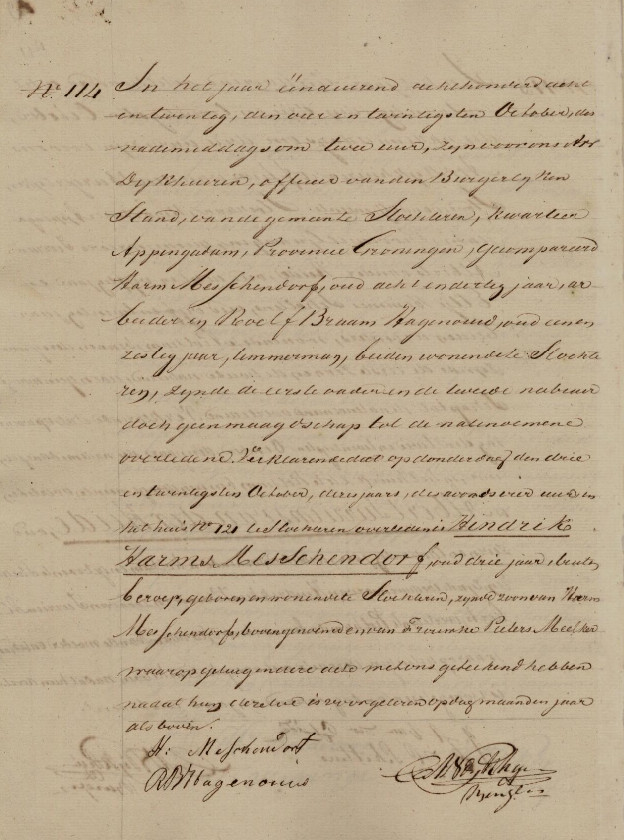 No 114 In het jaar ëënduizend achthonderd acht
en twintig, den vier en twintigsten October, des
nademiddags om twee uur, zyn voor ons
Dykhuizen, officier van den Burgerlyken
Stand, van de gemeente Slochteren, kwartier
Appingadam, Provincie Groningen, gecompareerd
Harm Messchendorf, oud acht en dertig jaar, ar
beider en Roelf Braam Hagenouw, oud een en
zestig jaar, timmerman, beiden wonende te Slochte
ren, zynde de eerste vader en de tweede nabuur
doch geen maagdschap tot de natenoemene
overledene, Verklarende dat op donderdag den drie
en twintigsten October, dezes jaars, des avonds vier uur in
het huis No 121 te Slochteren overleden is Hendrik
Harms Messchendorf, oud drie jaar, buiten
beroep, geboren en wonende te Slochteren, zynde zoon van Harm
Messchendorf, bovengenoemd en van Frouwke Pieters Meelker
waarop getuigen deze acte met ons geteekend hebben
nadat hun dezelve is voorgelezen op dag maand en jaar
als boven.
H: Meschendorf
R B Hagenouw